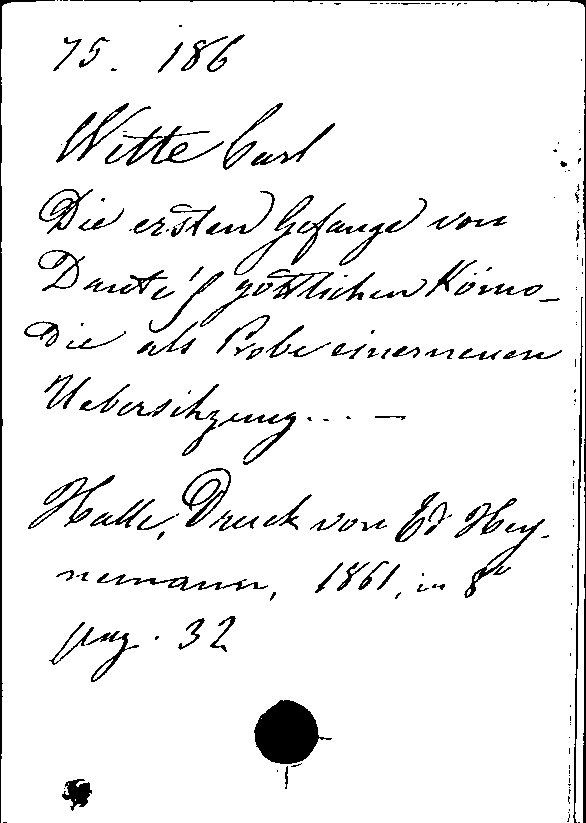 75. 186
Witte Carl
Die ersten Gesange von
Dante's göttlichen Kömo-
die als Probe einer neuen
Uebersitzung... —
Halle, Druck von Ed Hey-
nemann, 1861, in 8°
pag. 32